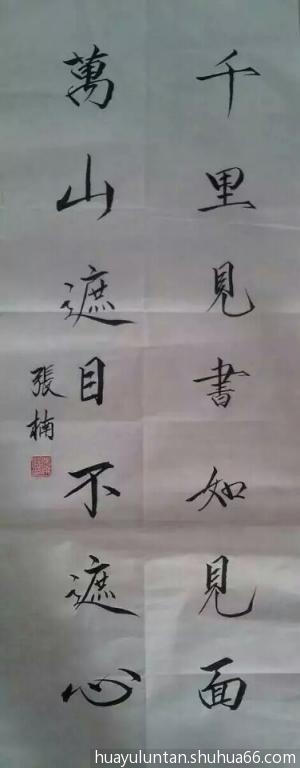 千里見書如見面
萬山遮目不遮心
張楠
huayuluntan.shuhua66.com